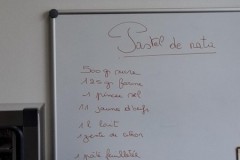 Pastel de nata
500 g sucre
120 g farine
1 pincée sel
11 jaunes d'oeufs
1 l lait
1 zeste de citron
1 pâte feuilletée